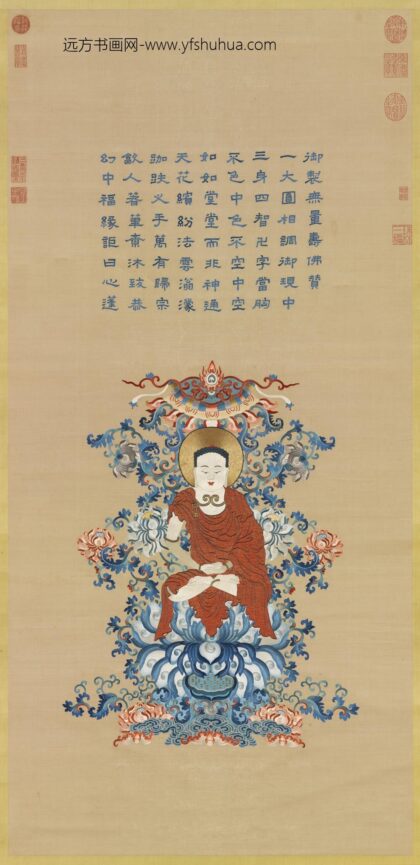 远方书画网-www.yfshuhua.com
御製無量壽佛贊
一大圓相調御現中
三身四智卍字當胸
不色中色不空中空
如如堂堂而非神通
天花繽紛法雲滃濛
跏趺义手萬有歸宗
人華沐致恭
幻中福緣詎曰心